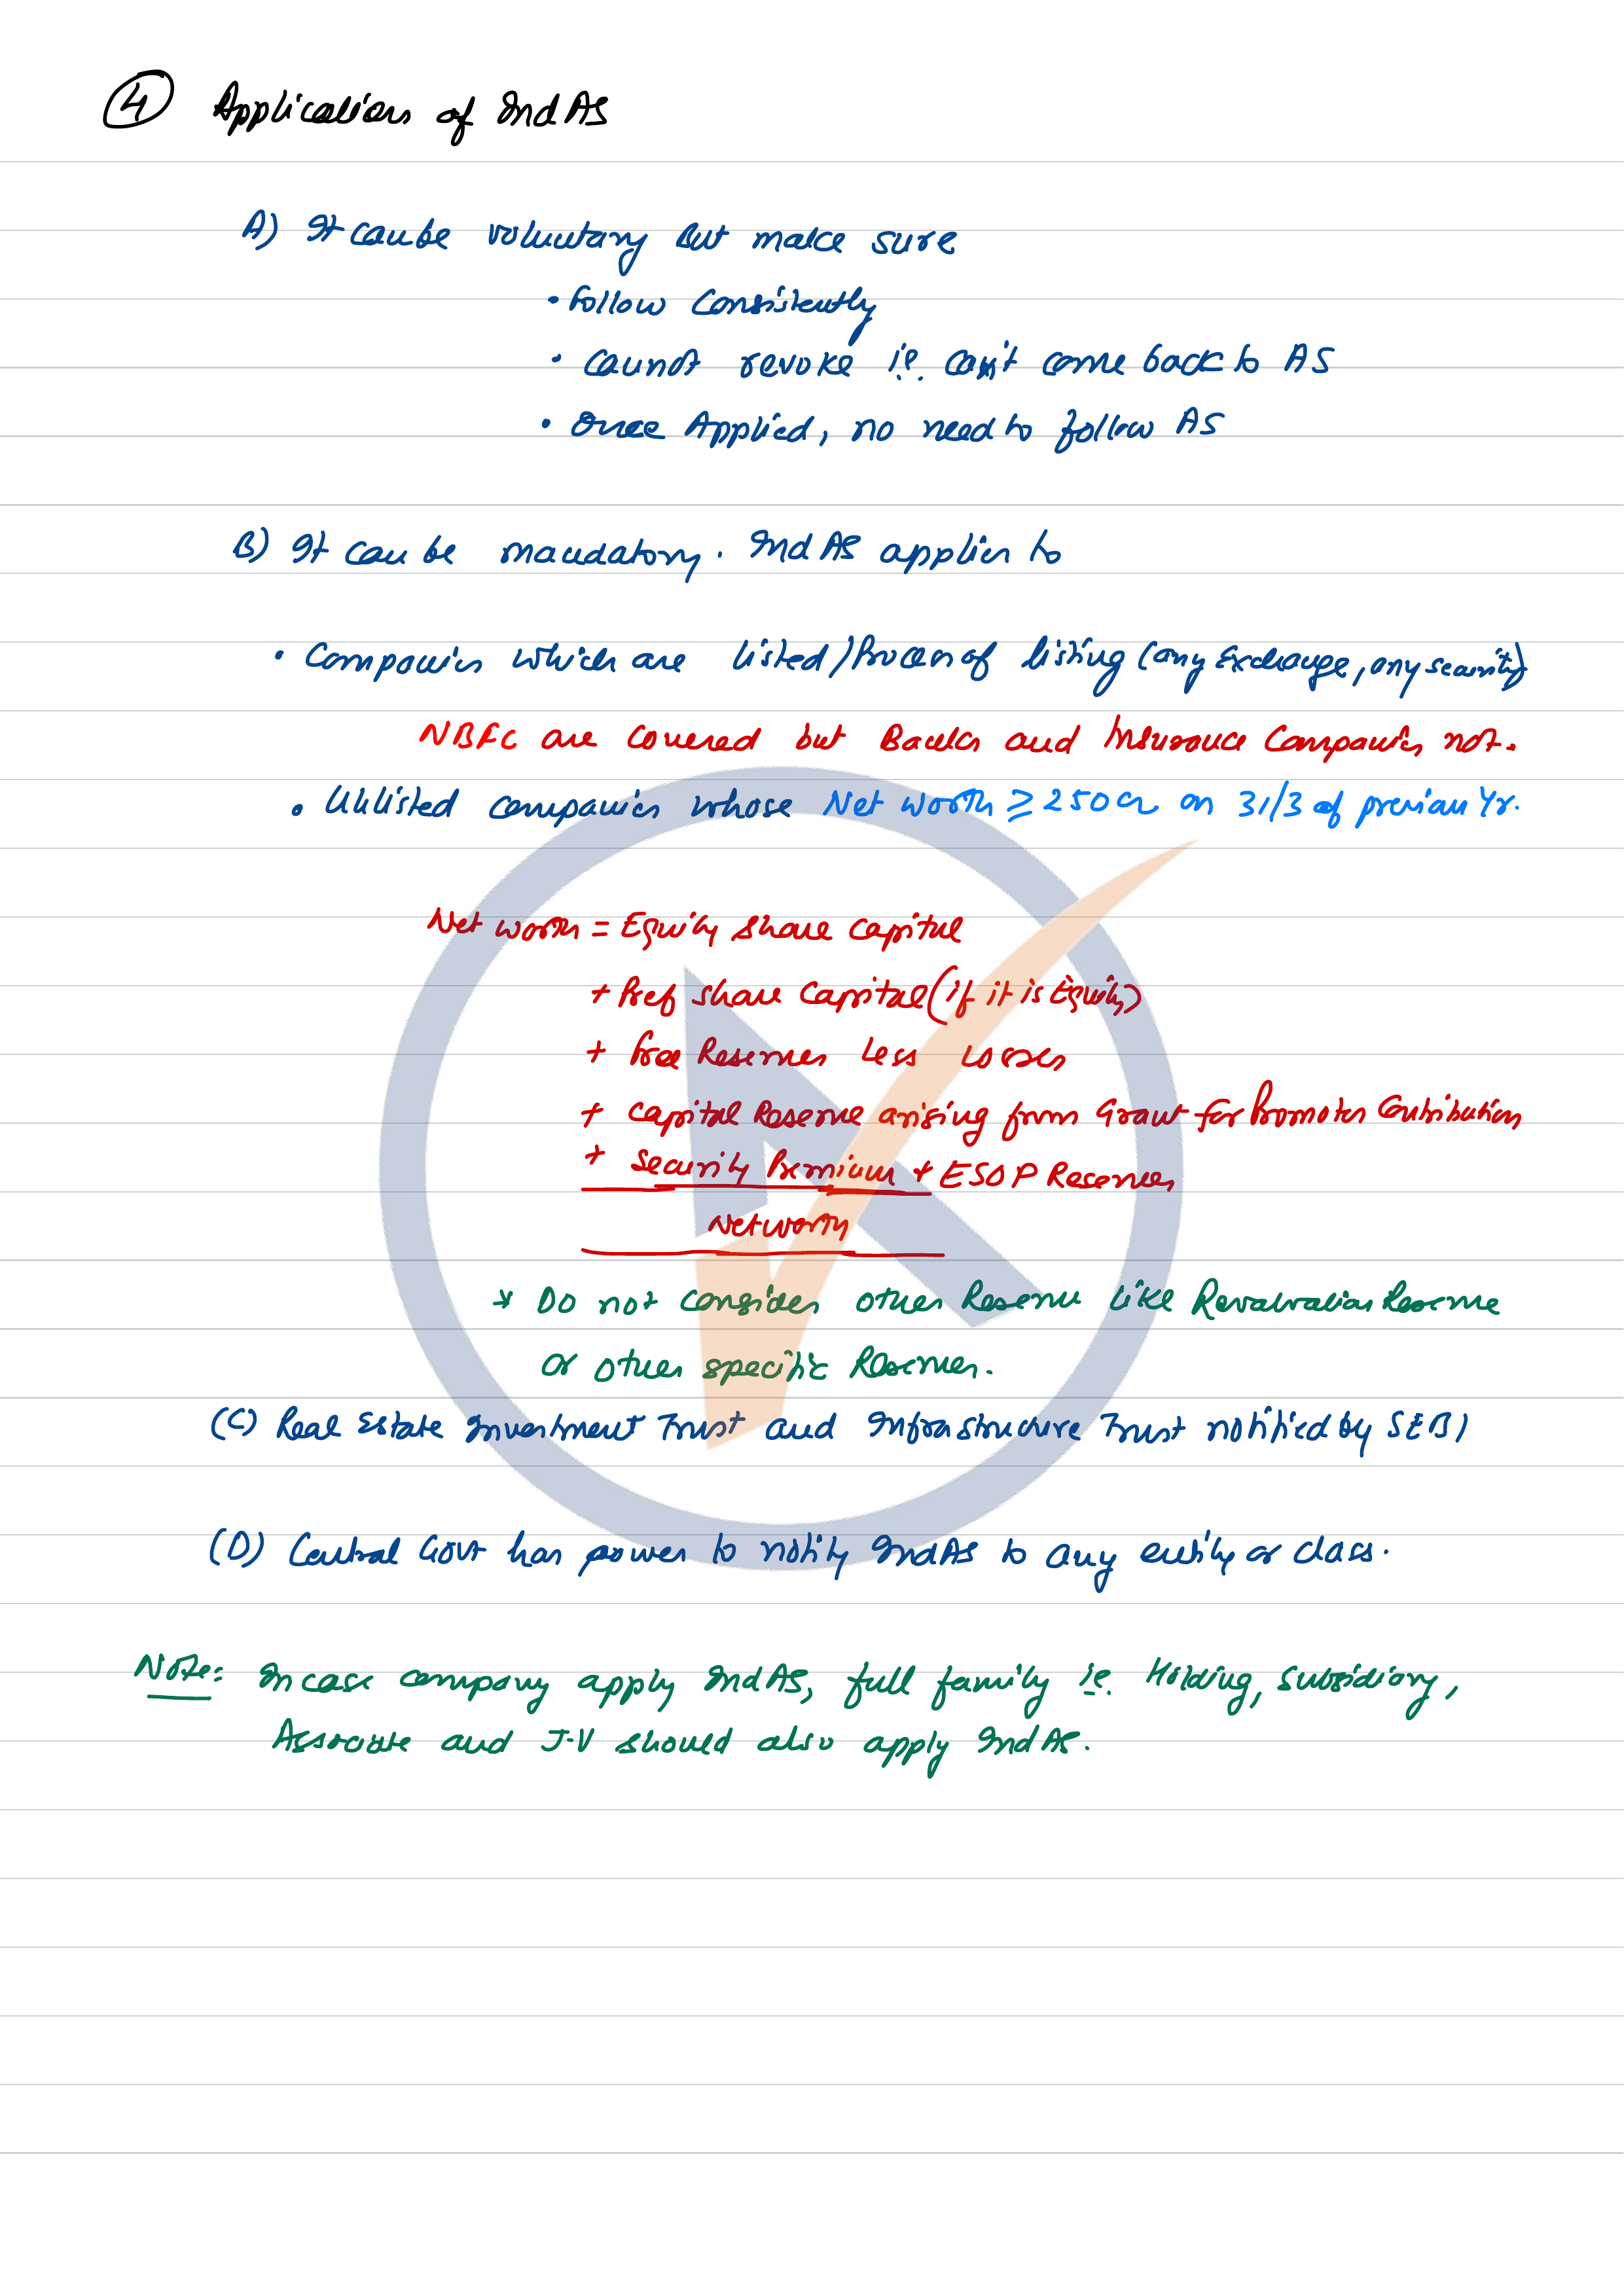 4 Applications of Ind AS
A) It can be voluntary but make sure
• Follow Consistently
• Cannot revoke i.e. can't come back to AS
• Once Applied, no need to follow AS
B) It can be mandatory. Ind AS applies to
• Companies which are listed/Process of listing (any Exchange, any security)
NBFC are covered but Banks and Insurance Companies not.
• Unlisted companies whose Net worth ≥ 250 cr on 31/3 of previous Yr.
Net worth = Equity share capital
+ Pref share Capital (if it is Equity)
+ free Reserves Less Losses
+ Capital Reserve arising from Grant for Promoter Contribution
+ Security Premium + ESOP Reserves
Networth
* Do not consider other Reserve like Revaluation Reserve
or other specific Reserves.
(C) Real Estate Investment Trust and Infrastructure Trust notified by SEBI
(D) Central Govt has power to notify Ind AS to any entity or class.
Note: In case company apply Ind AS, full family ie. Holding, subsidiary,
Associate and J-V should also apply Ind AS.